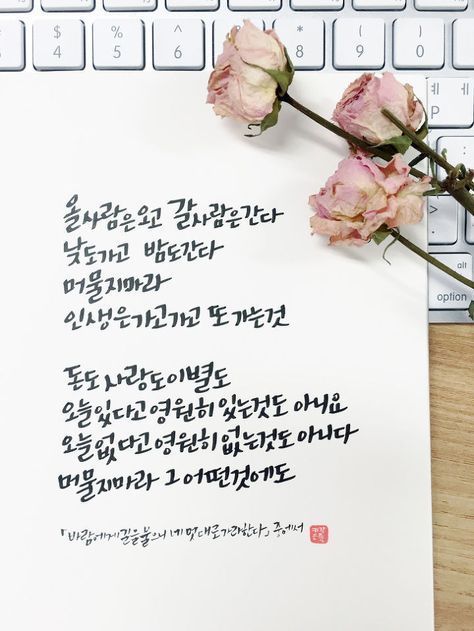 3 4 5 6 8 9 0
ㅔ ㅖ
P
alt
option
올사람은오고 갈사람은간다
낮도가고 밤도간다
머물지마라
인생은가고가고 또 가는것
돈도 사랑도 이별도
오늘있다고 영원히 있는것도 아니요
오늘없다고 영원히 없는것도 아니다
머물지마라 그 어떤것에도
「바람에게 길을 물으니 네 멋대로 가라한다」 중에서